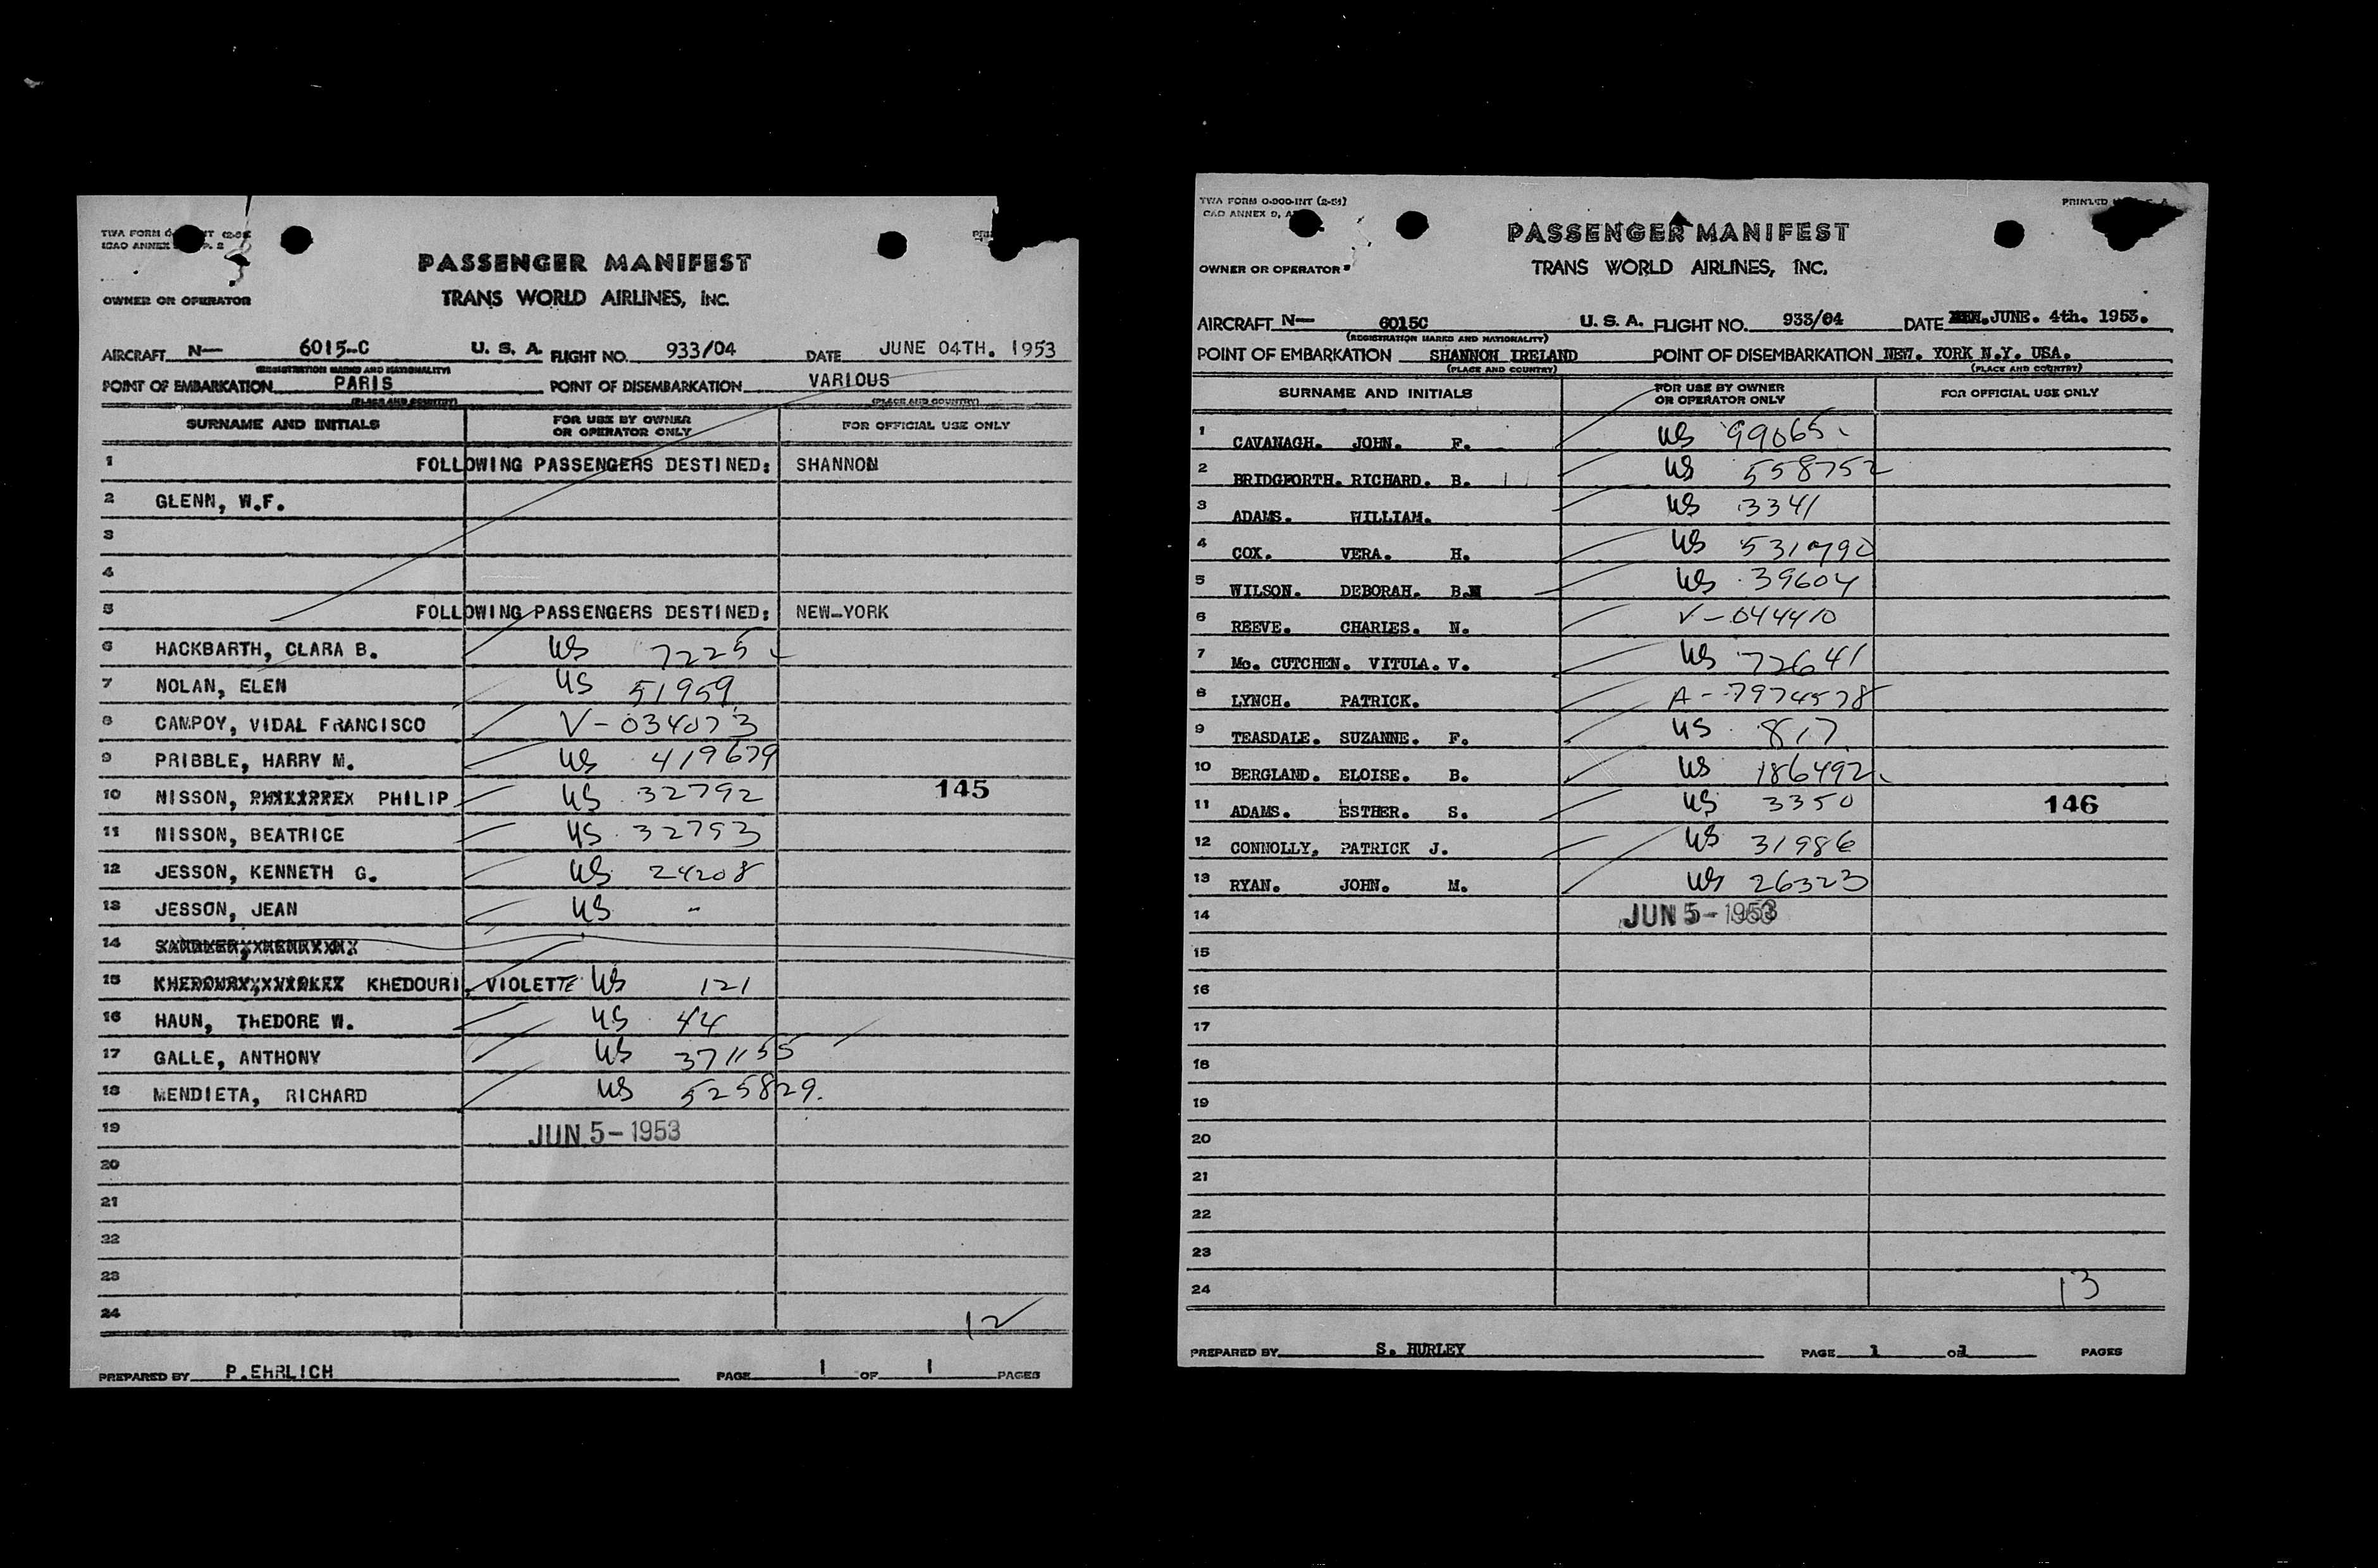 PASSENGER MANIFEST
OWNER OR OPERATOR TRANS WORLD AIRLINES, INC.
AIRCRAFT N— 6015-C U. S. A. FLIGHT NO. 933/04 DATE JUNE 04TH. 1953
(REGISTRATION MARKS AND NATIONALITY)
POINT OF EMBARKATION PARIS POINT OF DISEMBARKATION VARIOUS
(PLACE AND COUNTRY) (PLACE AND COUNTRY)
SURNAME AND INITIALS FOR USE BY OWNER OR OPERATOR ONLY FOR OFFICIAL USE ONLY
1 FOLLOWING PASSENGERS DESTINED: SHANNON
2 GLENN, W.F.
3
4
5 FOLLOWING PASSENGERS DESTINED: NEW-YORK
6 HACKBARTH, CLARA B. US 7225
7 NOLAN, ELEN US 51959
8 CAMPOY, VIDAL FRANCISCO V-034073
9 PRIBBLE, HARRY M. US 419679
10 NISSON, PHILIP US 32792 145
11 NISSON, BEATRICE US 32793
12 JESSON, KENNETH G. US 24208
13 JESSON, JEAN US -
14
15 KHEDOURI, VIOLETTE US 121
16 HAUN, THEDORE W. US 44
17 GALLE, ANTHONY US 371155
18 MENDIETA, RICHARD US 525829.
19 JUN 5-1953
20
21
22
23
24 12
PREPARED BY P.EHRLICH PAGE 1 OF 1 PAGES
TWA FORM O-900-INT (2-51)
PASSENGER MANIFEST
OWNER OR OPERATOR TRANS WORLD AIRLINES, INC.
AIRCRAFT N— 6015C U. S. A. FLIGHT NO. 933/04 DATE JUNE. 4th. 1953.
(REGISTRATION MARKS AND NATIONALITY)
POINT OF EMBARKATION SHANNON IRELAND POINT OF DISEMBARKATION NEW. YORK N.Y. USA.
(PLACE AND COUNTRY) (PLACE AND COUNTRY)
SURNAME AND INITIALS FOR USE BY OWNER OR OPERATOR ONLY FOR OFFICIAL USE ONLY
1 CAVANAGH. JOHN. F. US 99065
2 BRIDGFORTH. RICHARD. B. US 558752
3 ADAMS. WILLIAM. US 3341
4 COX. VERA. H. US 531790
5 WILSON. DEBORAH. B. US 39604
6 REEVE. CHARLES. N. V-044410
7 Mc. CUTCHEN. VITULA. V. US 72641
8 LYNCH. PATRICK. A-7974578
9 TEASDALE. SUZANNE. F. US 817
10 BERGLAND. ELOISE. B. US 186492
11 ADAMS. ESTHER. S. US 3350 146
12 CONNOLLY, PATRICK J. US 31986
13 RYAN. JOHN. M. US 26323
14 JUN 5-1953
15
16
17
18
19
20
21
22
23
24 13
PREPARED BY S. HURLEY PAGE 1 OF 1 PAGES